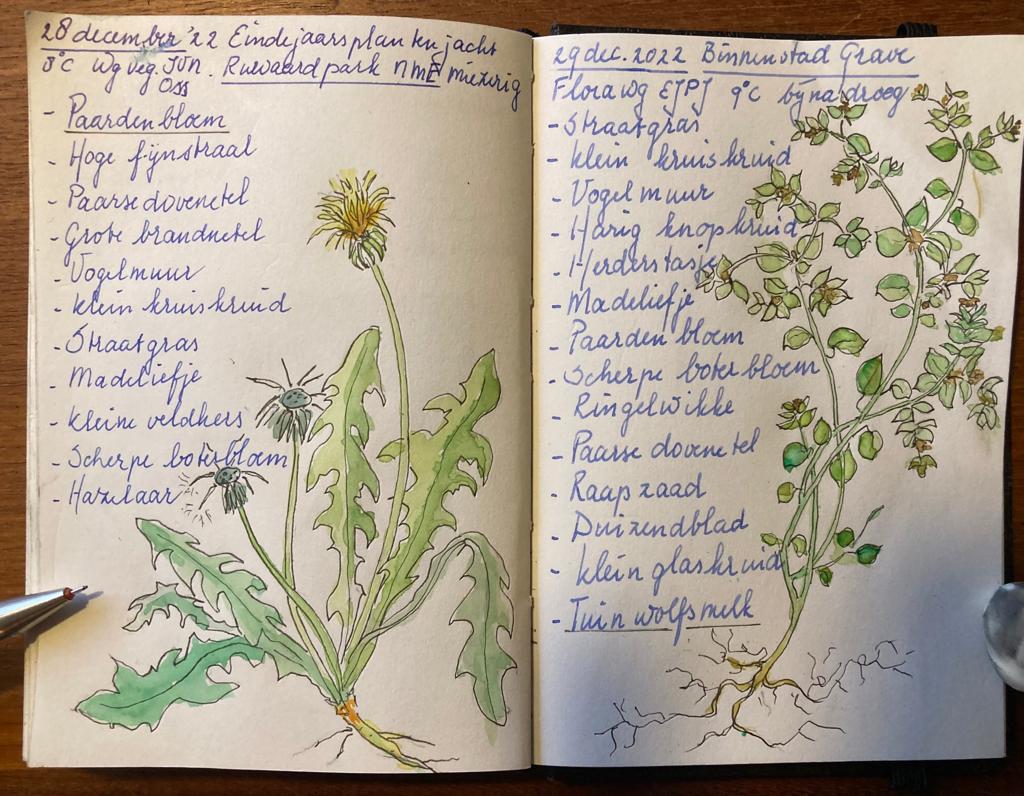 28 december '22 Eindejaarsplantenjacht
8°C Wg veg. IVN. Ruwaardpark NME miezerig
Oss
- Paardenbloem
- Hoge fijnstraal
- Paarse dovenetel
- Grote brandnetel
- Vogelmuur
- Klein kruiskruid
- Straatgras
- Madeliefje
- Kleine veldkers
- Scherpe boterbloem
- Hazelaar
29 dec. 2022 Binnenstad Grave
Flora wg EJPJ 9°C bijna droog
- Straatgras
- Klein kruiskruid
- Vogelmuur
- Harig knopkruid
- Herderstasje
- Madeliefje
- Paardenbloem
- Scherpe boterbloem
- Ringelwikke
- Paarse dovenetel
- Raapzaad
- Duizendblad
- Klein glaskruid
- Tuinwolfsmelk